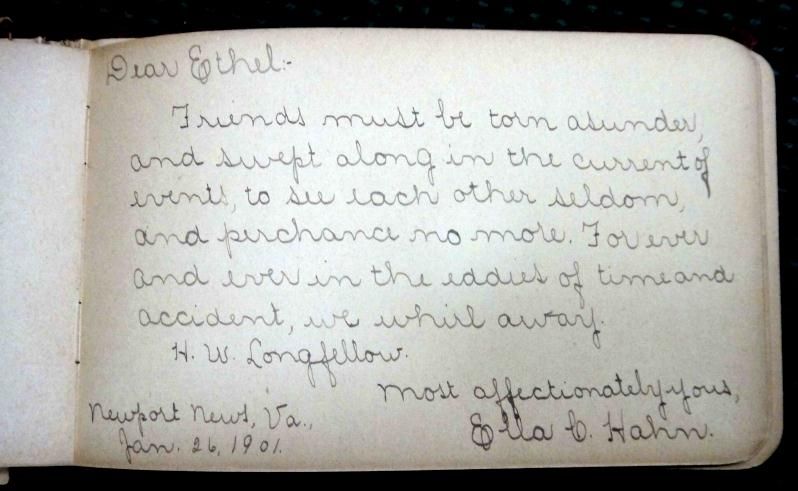 Dear Ethel:-
Friends must be torn asunder,
and swept along in the current of
events, to see each other seldom,
and perchance no more. For ever
and ever in the eddies of time and
accident, we whirl away.
H. W. Longfellow.
Most affectionately yours,
Ella C. Hahn.
Newport News, Va.,
Jan. 26, 1901.